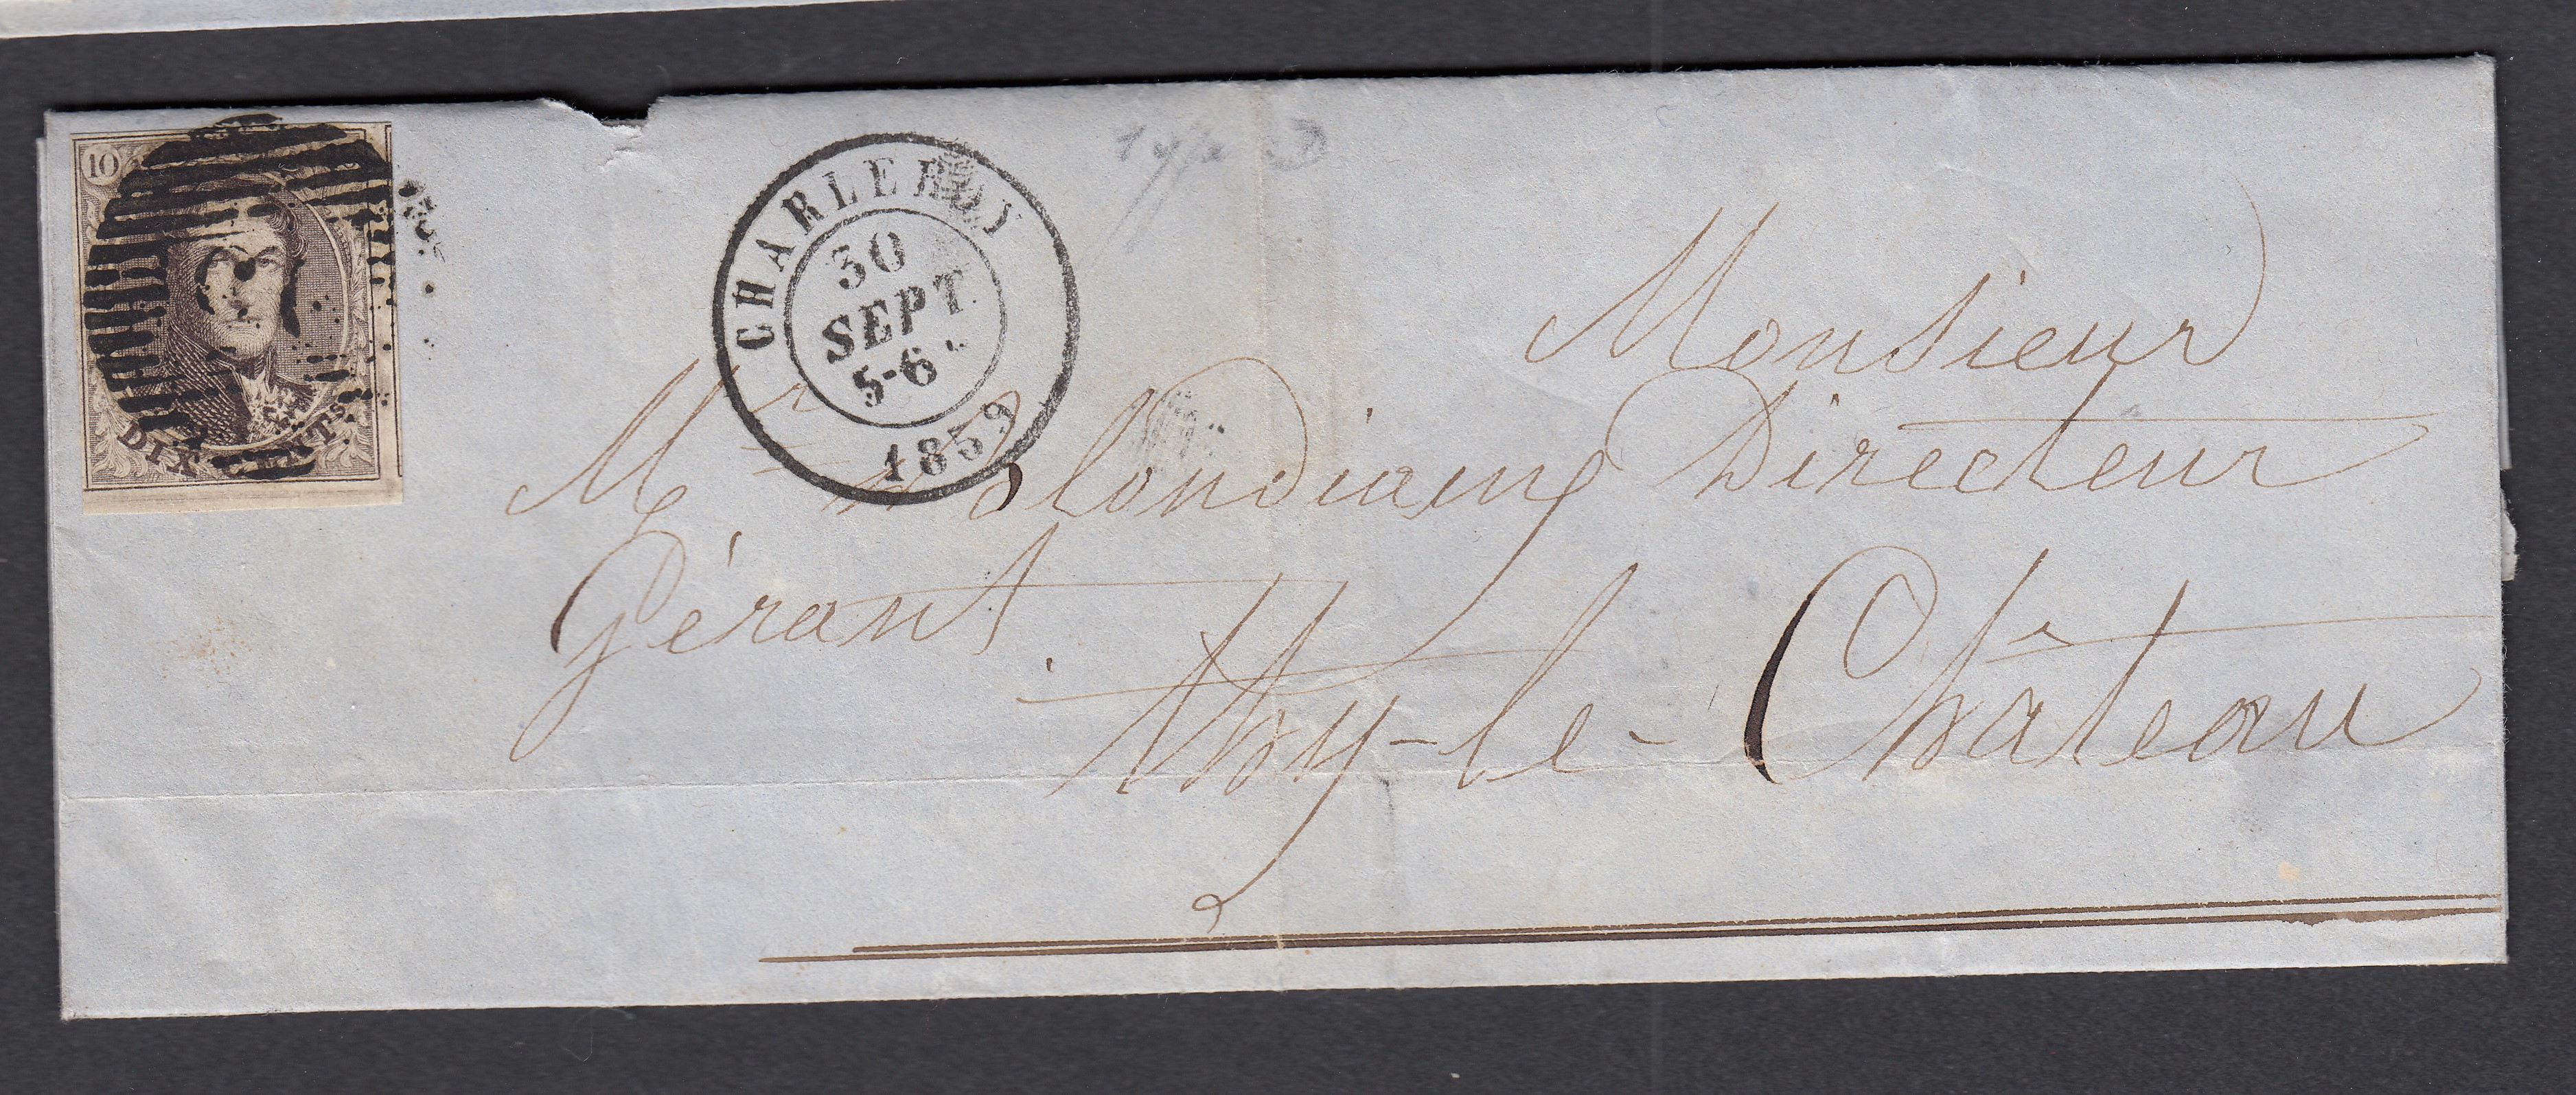 10
DIX CENTS
CHARLEROY
30
SEPT
5-6
1859
Monsieur
Mr Blondiaux Directeur
Gérant
Thy-le-Château